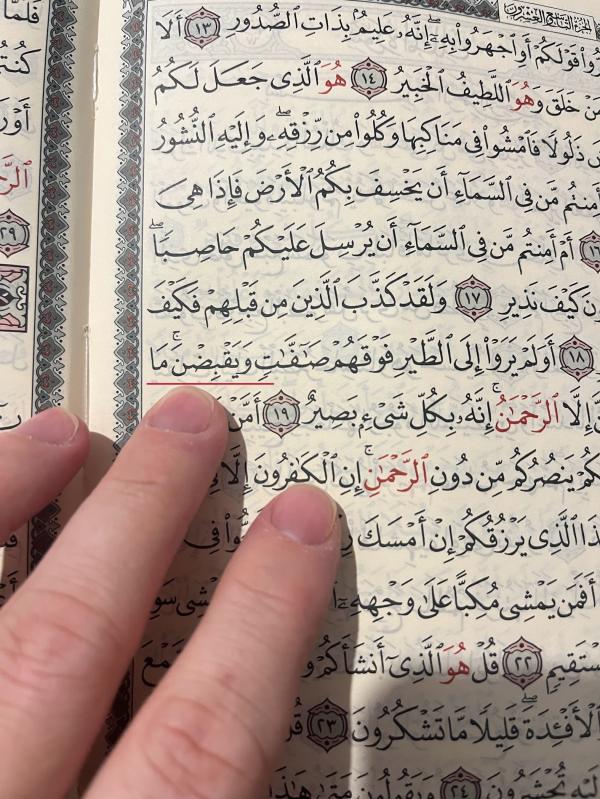 الجزء التاسع والعشرون
رُّوا۟ قَوْلَكُمْ أَوِ ٱجْهَرُوا۟ بِهِۦٓ ۖ إِنَّهُۥ عَلِيمٌۢ بِذَاتِ ٱلصُّدُورِ ١٣ أَلَا
مَنْ خَلَقَ وَهُوَ ٱللَّطِيفُ ٱلْخَبِيرُ ١٤ هُوَ ٱلَّذِى جَعَلَ لَكُمُ
ضَ ذَلُولًا فَٱمْشُوا۟ فِى مَنَاكِبِهَا وَكُلُوا۟ مِن رِّزْقِهِۦ ۖ وَإِلَيْهِ ٱلنُّشُورُ
أَمِنتُم مَّن فِى ٱلسَّمَآءِ أَن يَخْسِفَ بِكُمُ ٱلْأَرْضَ فَإِذَا هِىَ
١٦ أَمْ أَمِنتُم مَّن فِى ٱلسَّمَآءِ أَن يُرْسِلَ عَلَيْكُمْ حَاصِبًا ۖ
ونَ كَيْفَ نَذِيرِ ١٧ وَلَقَدْ كَذَّبَ ٱلَّذِينَ مِن قَبْلِهِمْ فَكَيْفَ
١٨ أَوَلَمْ يَرَوْا۟ إِلَى ٱلطَّيْرِ فَوْقَهُمْ صَٰٓفَّٰتٍ وَيَقْبِضْنَ ۚ مَا
إِلَّا ٱلرَّحْمَٰنُ ۚ إِنَّهُۥ بِكُلِّ شَىْءٍۭ بَصِيرٌ ١٩ أَمَّنْ
لَكُمْ يَنصُرُكُم مِّن دُونِ ٱلرَّحْمَٰنِ ۚ إِنِ ٱلْكَٰفِرُونَ إِلَّا
ذَا ٱلَّذِى يَرْزُقُكُمْ إِنْ أَمْسَكَ
أَفَمَن يَمْشِى مُكِبًّا عَلَىٰ وَجْهِهِۦٓ
سْتَقِيمٍ ٢٢ قُلْ هُوَ ٱلَّذِىٓ أَنشَأَكُمْ
ٱلْأَفْـِٔدَةَ ۖ قَلِيلًا مَّا تَشْكُرُونَ ٢٣
لَيْهِ تُحْشَرُونَ ٢٤ وَيَقُولُونَ مَتَىٰ هَٰذَا